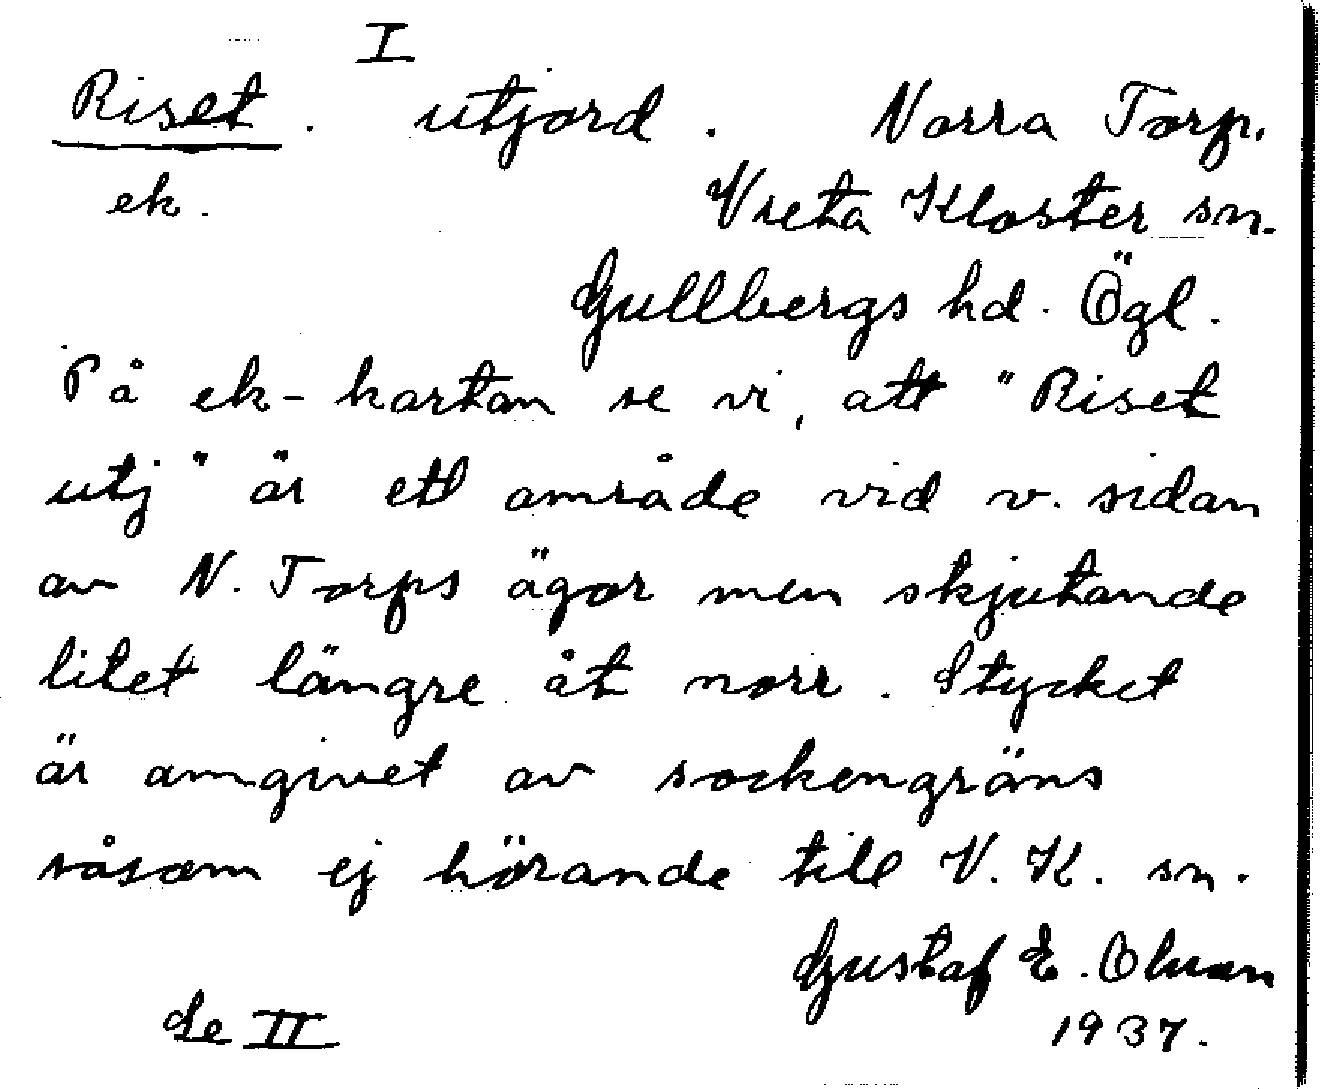 I
Riset. utjord. Norra Torp.
ek. Vreta Kloster sn.
Gullbergs hd. Ögl.
På ek-kartan se vi, att "Riset
utj" är ett område vid v. sidan
av N. Torps ägor men skjutande
litet längre åt norr. Stycket
är omgivet av sockengräns
såsom ej hörande till V. K. sn.
Gustaf E.
Se II 1937.